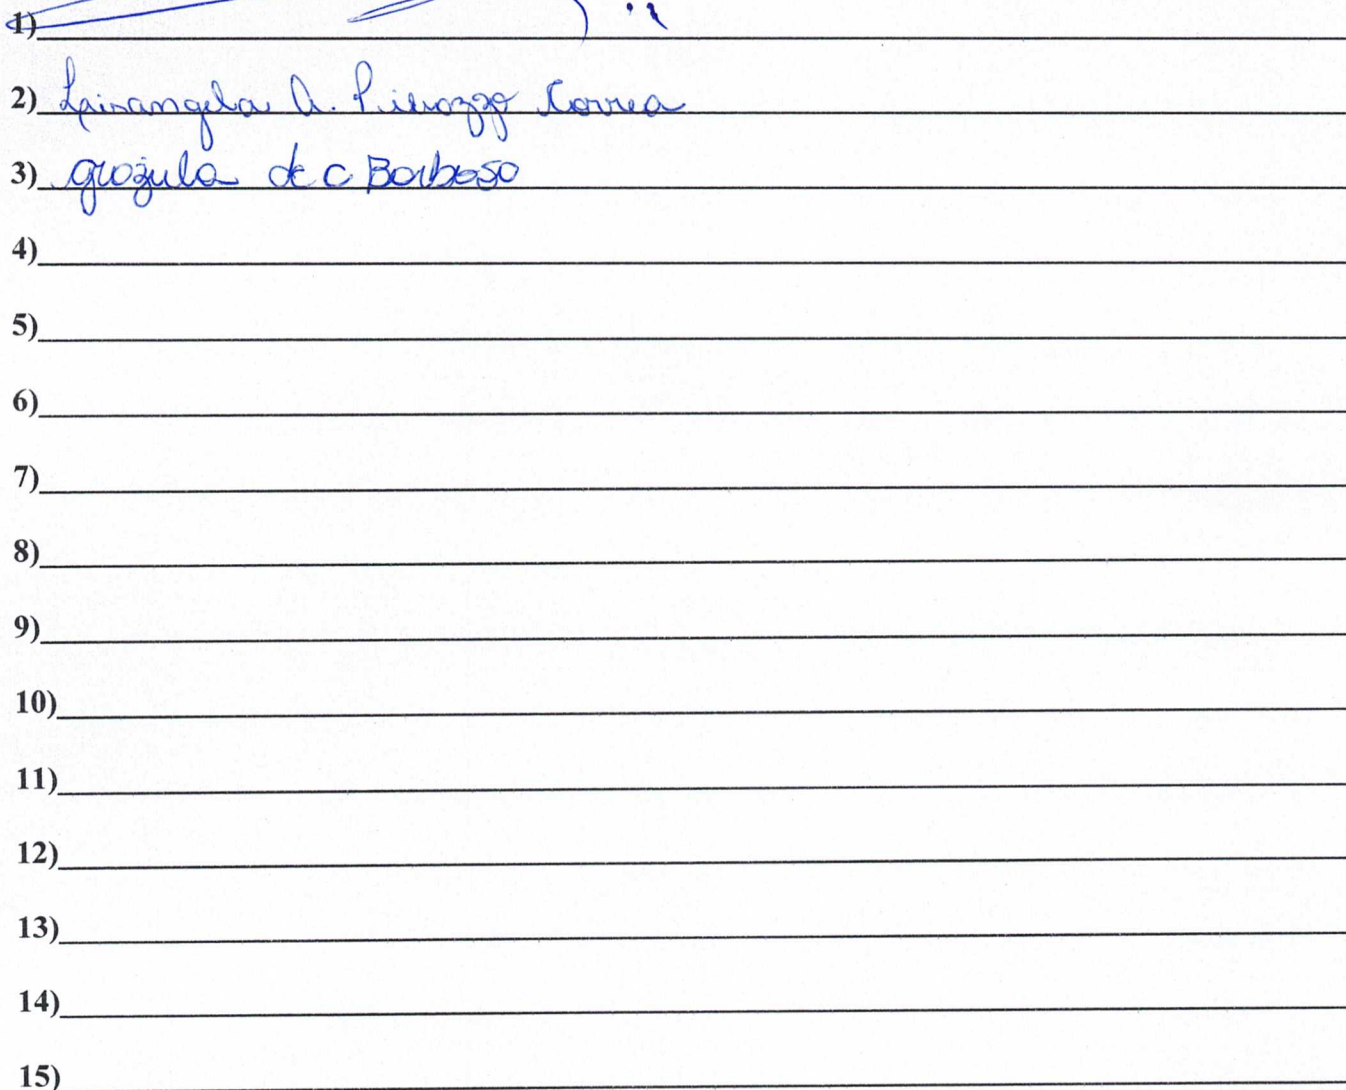 1)
2) Lairangela A. Pierozzo Correa
3) grozula de C Barboso
4)
5)
6)
7)
8)
9)
10)
11)
12)
13)
14)
15)